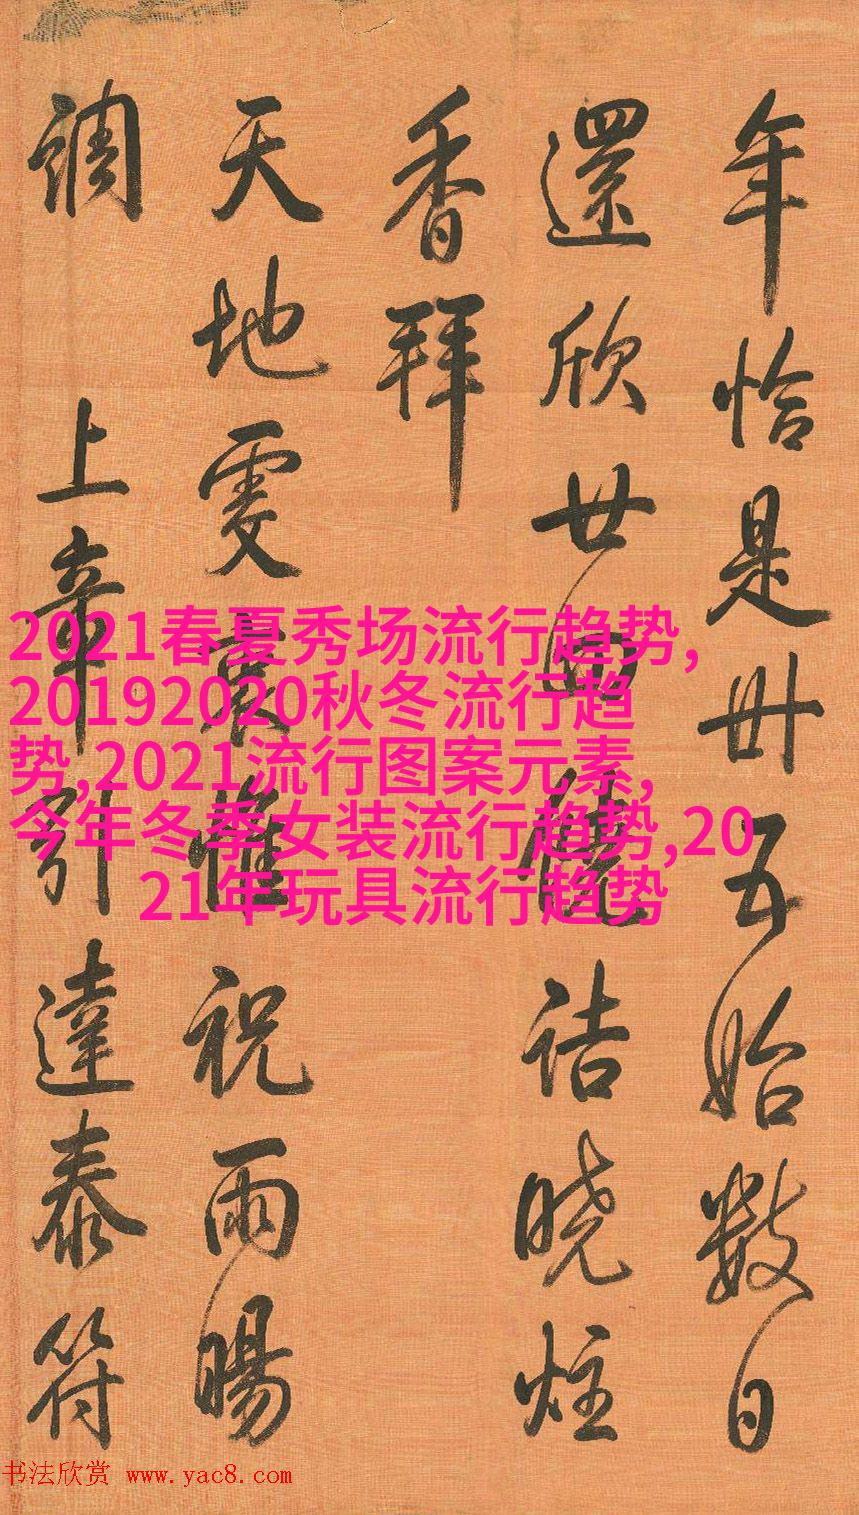 年恰是卅五始數日
還欣廿四
詰曉炷
香拜
天地雯
惟祝雨暘
調
上辛引達泰符
2021春夏秀场流行趋势,
20192020秋冬流行趋
势,2021流行图案元素,
今年冬季女装流行趋势,20
21年玩具流行趋势
书法欣赏 www.yac8.com